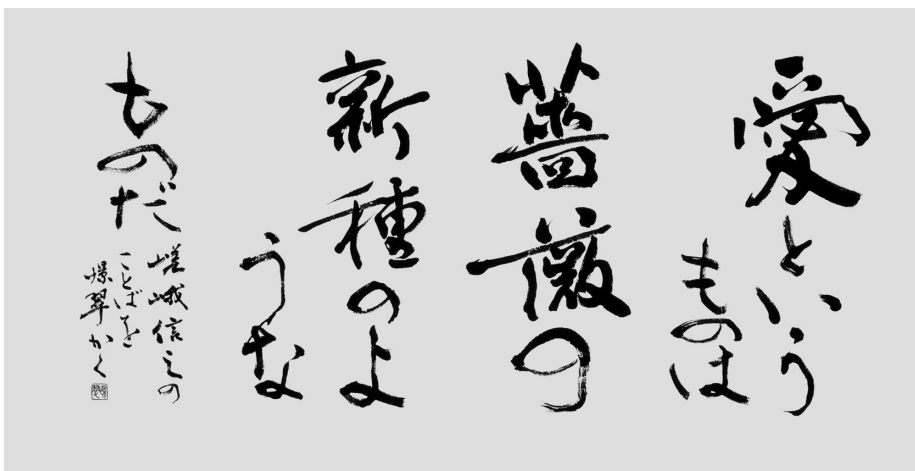 愛という
ものは
薔薇の
新種のよ
うな
ものだ
嵯峨信之の
ことばを
翠かく